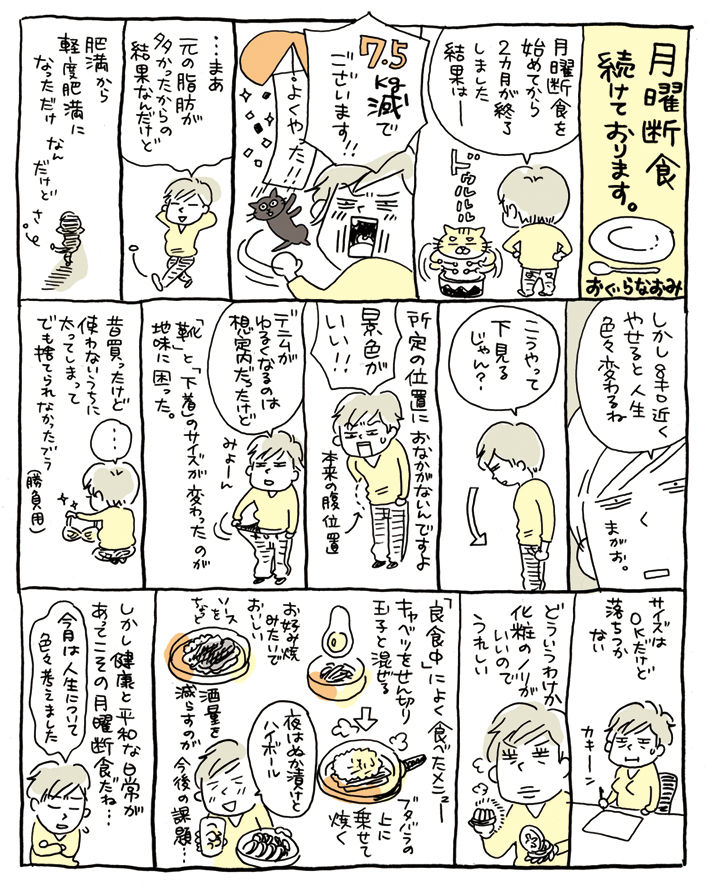 月曜断食
続けております。
おぐらなおみ
月曜断食を
始めてから
2カ月が終了
しました
結果はー
ドゥルルル
7.5
kg減で
ございます!!
よくやった!!
…まあ
元の脂肪が
多かったからの
結果なんだけど
肥満から
軽度肥満に
なっただけ なん
だけど さ
しかし8キロ近く
やせると人生
色々変わるね
まがお。
こうやって
下見る
じゃん?
所定の位置に おなかがないんですよ
景色が
いい!!
本来の腹位置
デニムが
ゆるくなるのは
想定内だったけど
「靴」と「下着」のサイズが変わったのが
地味に困った。
みょーん
昔買ったけど
使わないうちに
太ってしまって
でも捨てられなかったブラ
(勝負用)
…
サイズは
OKだけど
落ちつか
ない
カキーン
どういうわけか
化粧のノリが
いいので
うれしい
「良食中」によく食べたメニュー
キャベツをせん切り
玉子と混ぜる
ブタバラの
上に
乗せて
焼く
お好み焼
みたいで
おいしい
ソース
を
など
夜はぬか漬けと
ハイボール
酒量を
減らすのが
今後の課題…
しかし健康と平和な日常が
あってこその月曜断食だね…
今月は人生について
色々考えました